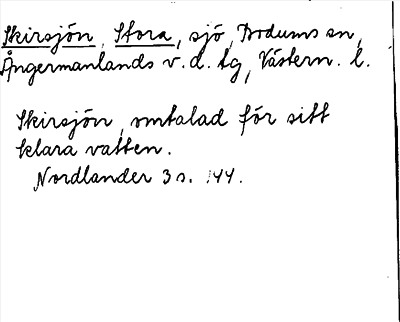 Skirsjön, Stora, sjö, Bodums sn,
Ångermanlands v. d. tg, Västern. l.
Skirsjön, omtalad för sitt
klara vatten.
Nordlander 3 s. 44.